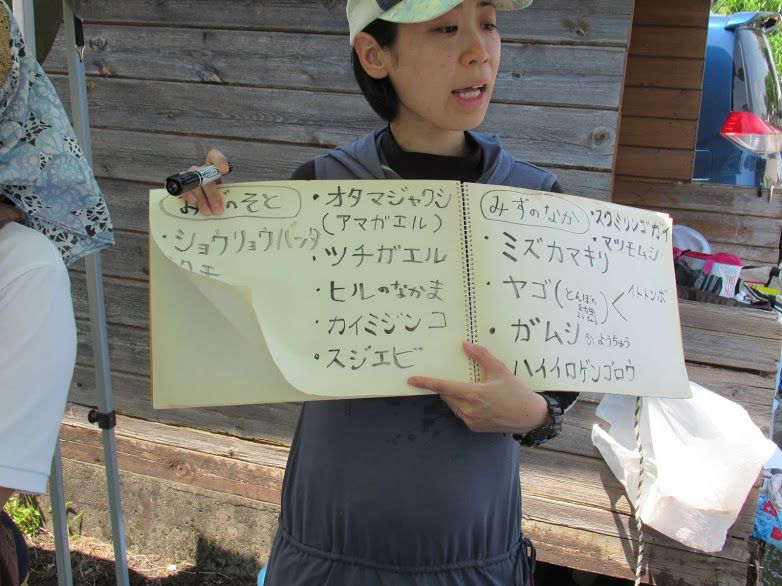 みずのそと
・ショウリョウバッタ
・クモ
・オタマジャクシ
(アマガエル)
・ツチガエル
・ヒルのなかま
・カイミジンコ
・スジエビ
みずのなか
・スクミリンゴガイ
・マツモムシ
・ミズカマキリ
・ヤゴ(とんぼの幼虫ようちゅう)< イトトンボ
・ガムシのようちゅう
・ハイイロゲンゴロウ